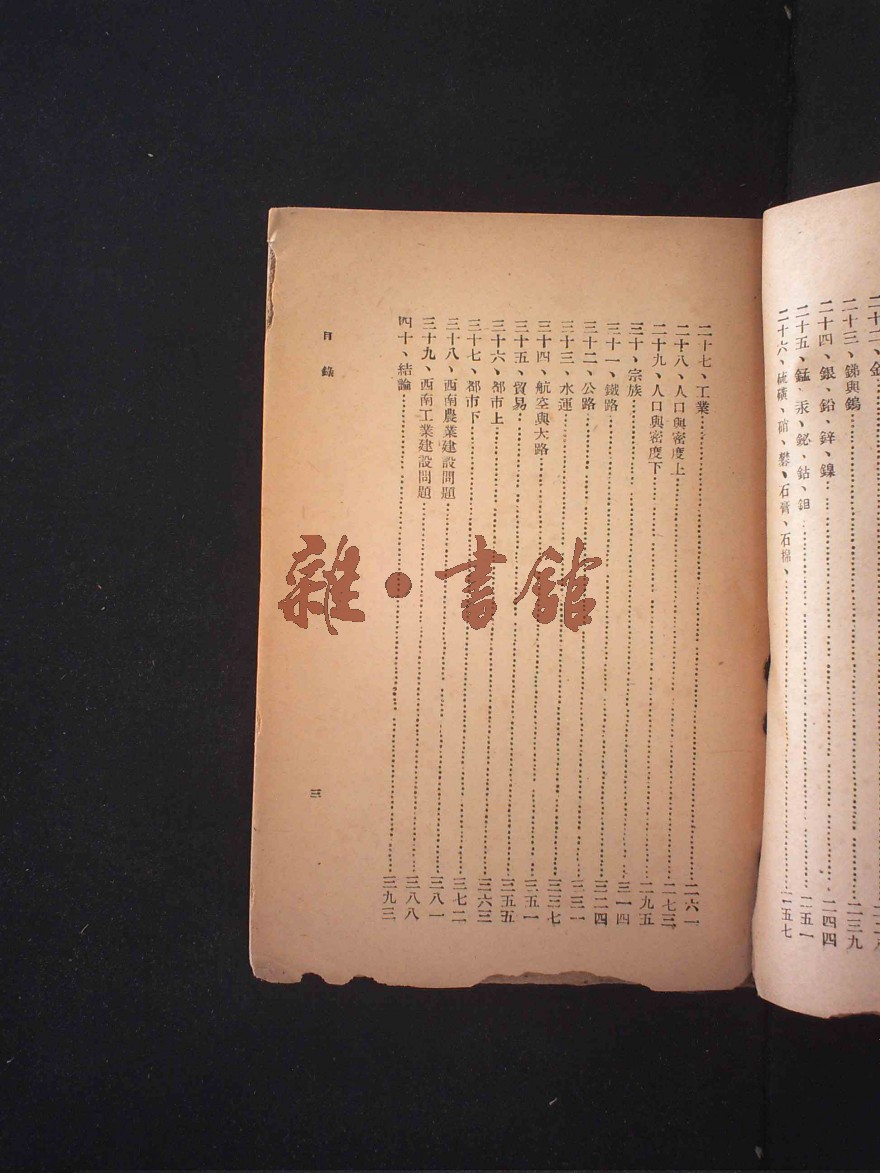 二十三、銻與鎢……二三九
二十四、銀、鉛、鋅、鎳……二四四
二十五、錳、汞、鉍、鈷、鉬……二五一
二十六、硫磺、硝、礬、石膏、石棉、……二五七
二十七、工業……二六一
二十八、人口與密度上……二七三
二十九、人口與密度下……二九五
三十、宗族……三一四
三十一、鐵路……三二四
三十二、公路……三三一
三十三、水運……三三七
三十四、航空與大路……三五一
三十五、貿易……三五五
三十六、都市上……三六三
三十七、都市下……三七二
三十八、西南農業建設問題……三八一
三十九、西南工業建設問題……三八八
四十、結論……三九三
目錄
三
雜·書館